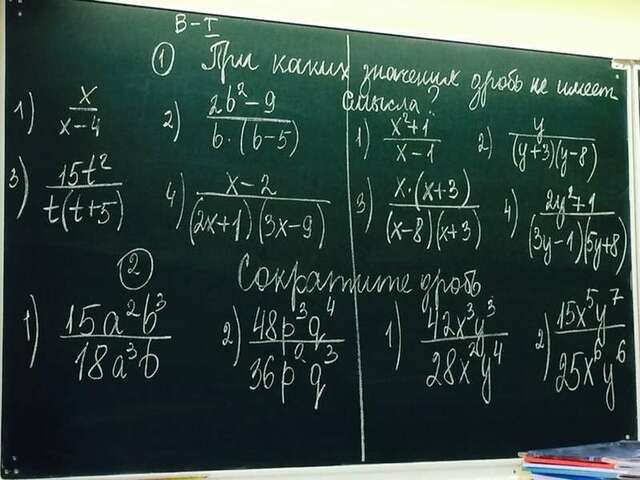 В-I
① При каких значениях дробь не имеет
смысла?
1) x/(x-4) 2) (2b²-9)/(b·(b-5))
3) 15t²/(t(t+5)) 4) (x-2)/((2x+1)(3x-9))
1) (x²+1)/(x-1) 2) y/((y+3)(y-8))
3) x·(x+3)/((x-8)(x+3)) 4) (2y²+1)/((3y-1)(5y+8))
② Сократите дробь
1) 15a²b³/18a³b 2) 48p³q⁴/36p²q³
1) 42x³y³/28x²y⁴ 2) 15x⁵y⁷/25x⁶y⁶